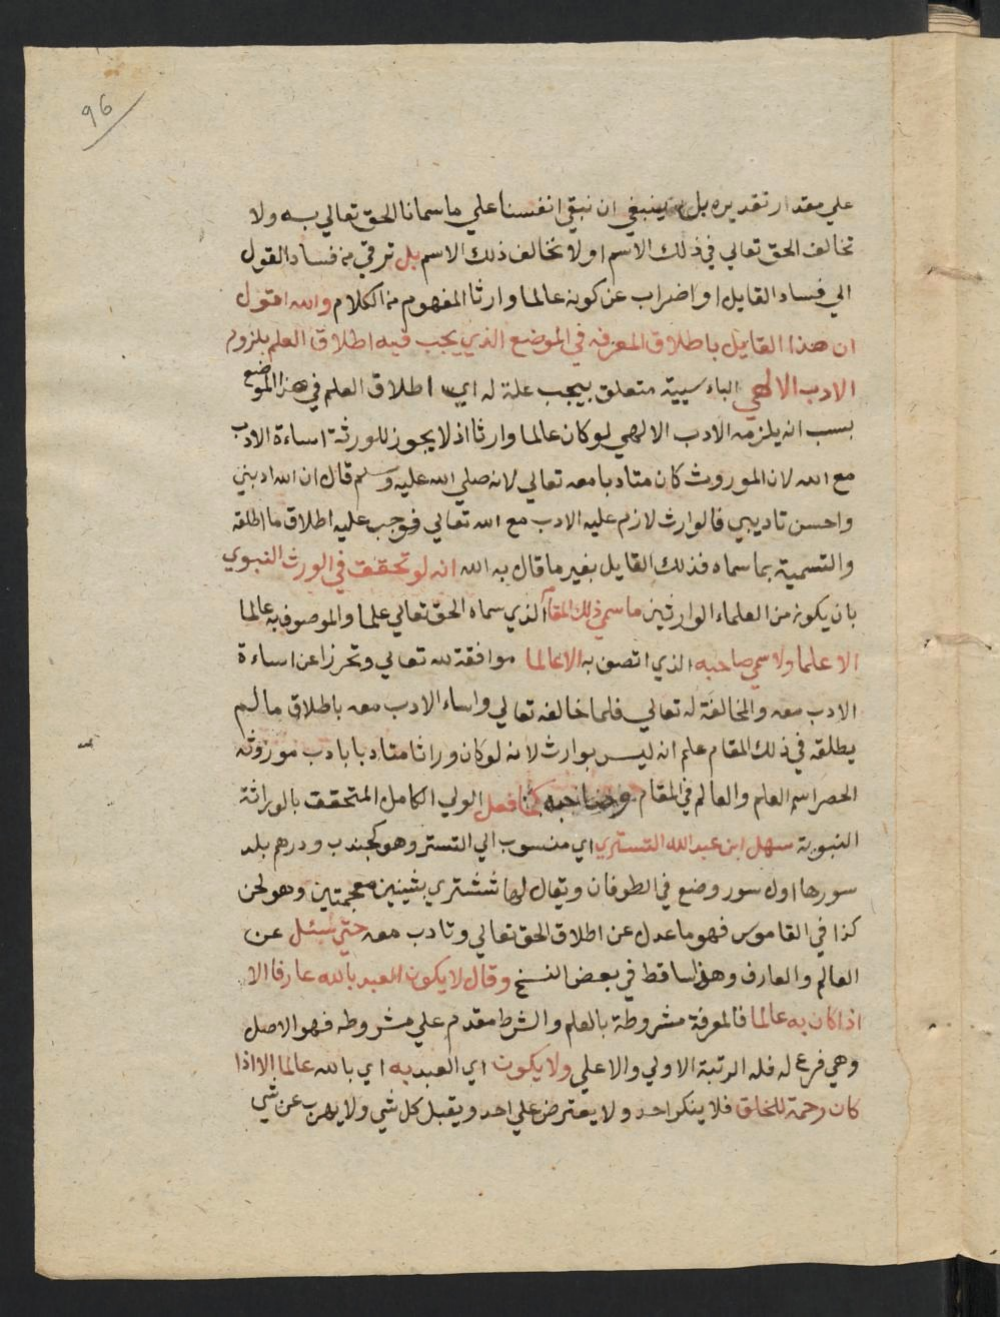 96
علي مقدار تقديره بل ينبغي ان نبقي انفسنا علي ما سمانا الحق تعالي به ولا
نخالف الحق تعالي في ذلك الاسم او لا نخالف ذلك الاسم بل ترقي من فساد القول
الي فساد القايل او اضراب عن كونه عالما وارثا المفهوم من الكلام والله اقول
ان هذا القايل باطلاق المعرفة في الموضع الذي يجب فيه اطلاق العلم بلزوم
الادب الالهي الباء سببية متعلق بيجب علة له اي اطلاق العلم في هذا الموضع
بسبب انه يلزمه الادب الالهي لو كان عالما وارثا اذ لا يجوز للورثة اساءة الادب
مع الله لان الموروث كان متادبا معه تعالي لانه صلي الله عليه وسلم قال ان الله ادبني
واحسن تاديبي فالوارث لازم عليه الادب مع الله تعالي فوجب عليه اطلاق ما اطلقه
والتسمية بما سماه فذلك القايل بغير ما قال به الله انه لو تحقق في الورث النبوي
بان يكون من العلماء الوارثين ما سمي ذلك المقام الذي سماه الحق تعالي علما والموصوف به عالما
الا علما ولا سمي صاحبه الذي اتصف به الا عالما موافقة لله تعالي وتحرزا عن اساءة
الادب معه والمخالفة له تعالي فلما خالفه تعالي واساء الادب معه باطلاق ما لم
يطلقه في ذلك المقام علم انه ليس بوارث لانه لو كان وراثا متادبا بادب موروثه
الحصر اسم العلم والعالم في المقام وصاحبه كما فعل الولي الكامل المتحقق بالوراثة
النبوية سهل ابن عبد الله التستري اي منسوب الي التستر وهو كجندب ودرهم بلد
سورها اول سور وضع في الطوفان ويقال لها ششتري بشينين معجمتين وهو لحن
كذا في القاموس فهو ما عدل عن اطلاق الحق تعالي وتادب معه حتي سئل عن
العالم والعارف وهذا ساقط في بعض النسخ وقال لا يكون العبد بالله عارفا الا
اذا كان به عالما فالمعرفة مشروطة بالعلم والشرط مقدم علي مشروطه فهو الاصل
وهي فرع له فله الرتبة الاولي والاعلي ولا يكون اي العبد به اي بالله عالما الا اذا
كان رحمة للخلق فلا ينكر احد ولا يعترض علي احد ويقبل كل شي ولا يهرب عن شي